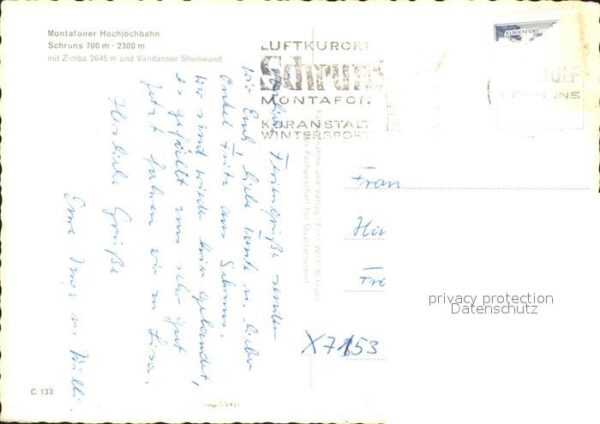 Montafoner Hochjochbahn
Schruns 700 m - 2300 m
mit Zimba 2645 m und Vandanser Steinwand
LUFTKURORT
Schruns
MONTAFON
KURANSTALT
WINTERSPORT
KLAGENFURT
SCHRUNS
Feriengrüße senden
wir Euch, liebe Tante u. lieber
Onkel Fritz aus Schruns.
Wir sind wieder hier gelandet,
es gefällt uns sehr gut
jetzt fahren wir zu Lisa.
Herzliche Grüße
Eure Inge u. Willi
Frau
Hin
Fre
X7153
privacy protection
Datenschutz
C 133